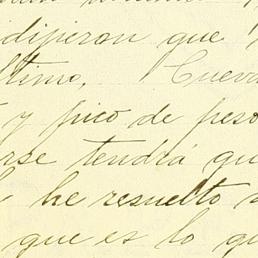 dijeron que
ltimo. Cueva
y pico de peso
rse tendrá qu
he resuelto
que es lo qu